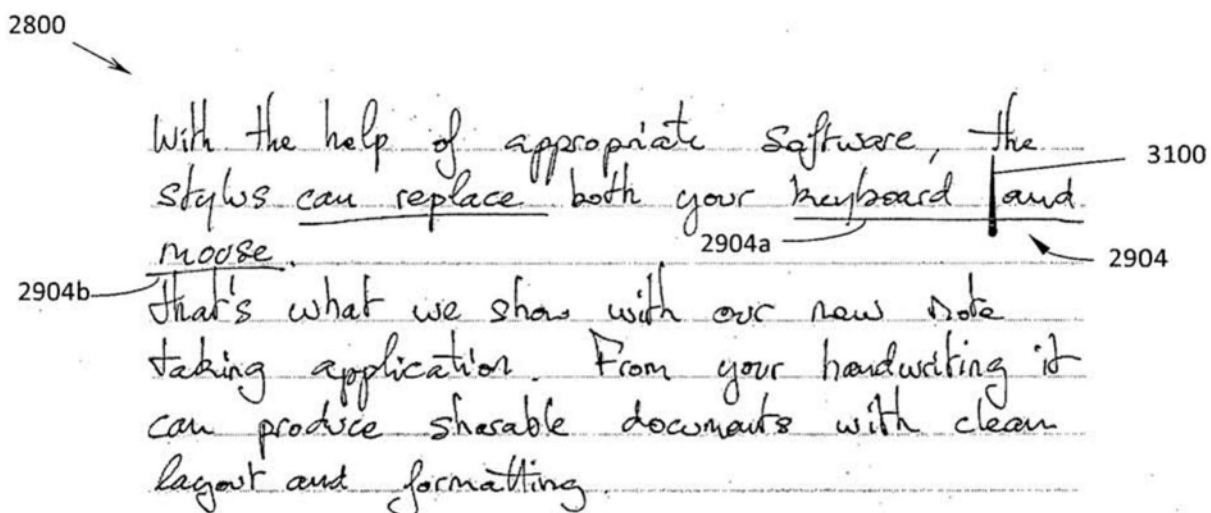 2800
With the help of appropriate software, the
3100
stylus can replace both your keyboard and
2904a
2904
mouse.
2904b
that's what we show with our new note
taking application. From your handwriting it
can produce sharable documents with clean
layout and formatting.